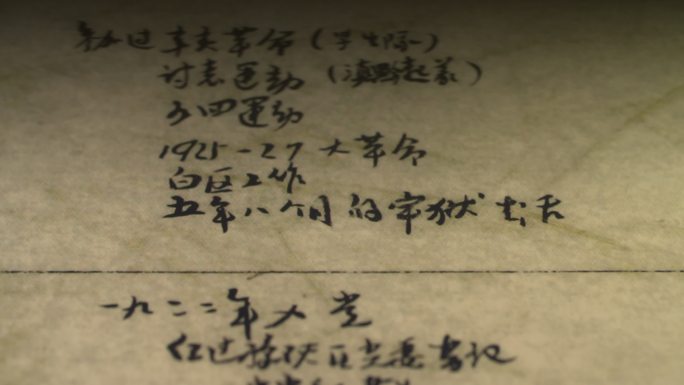 参加过辛亥革命(学生队)
讨袁运动(滇黔起义)
五四运动
1925-27大革命
白区工作
五年八个月的牢狱生活
一九二二年入党
任过 区党委书记